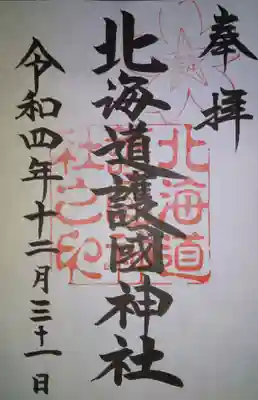 奉拝
北海道護國神社
北海道護國神社之印
令和四年十二月三十一日